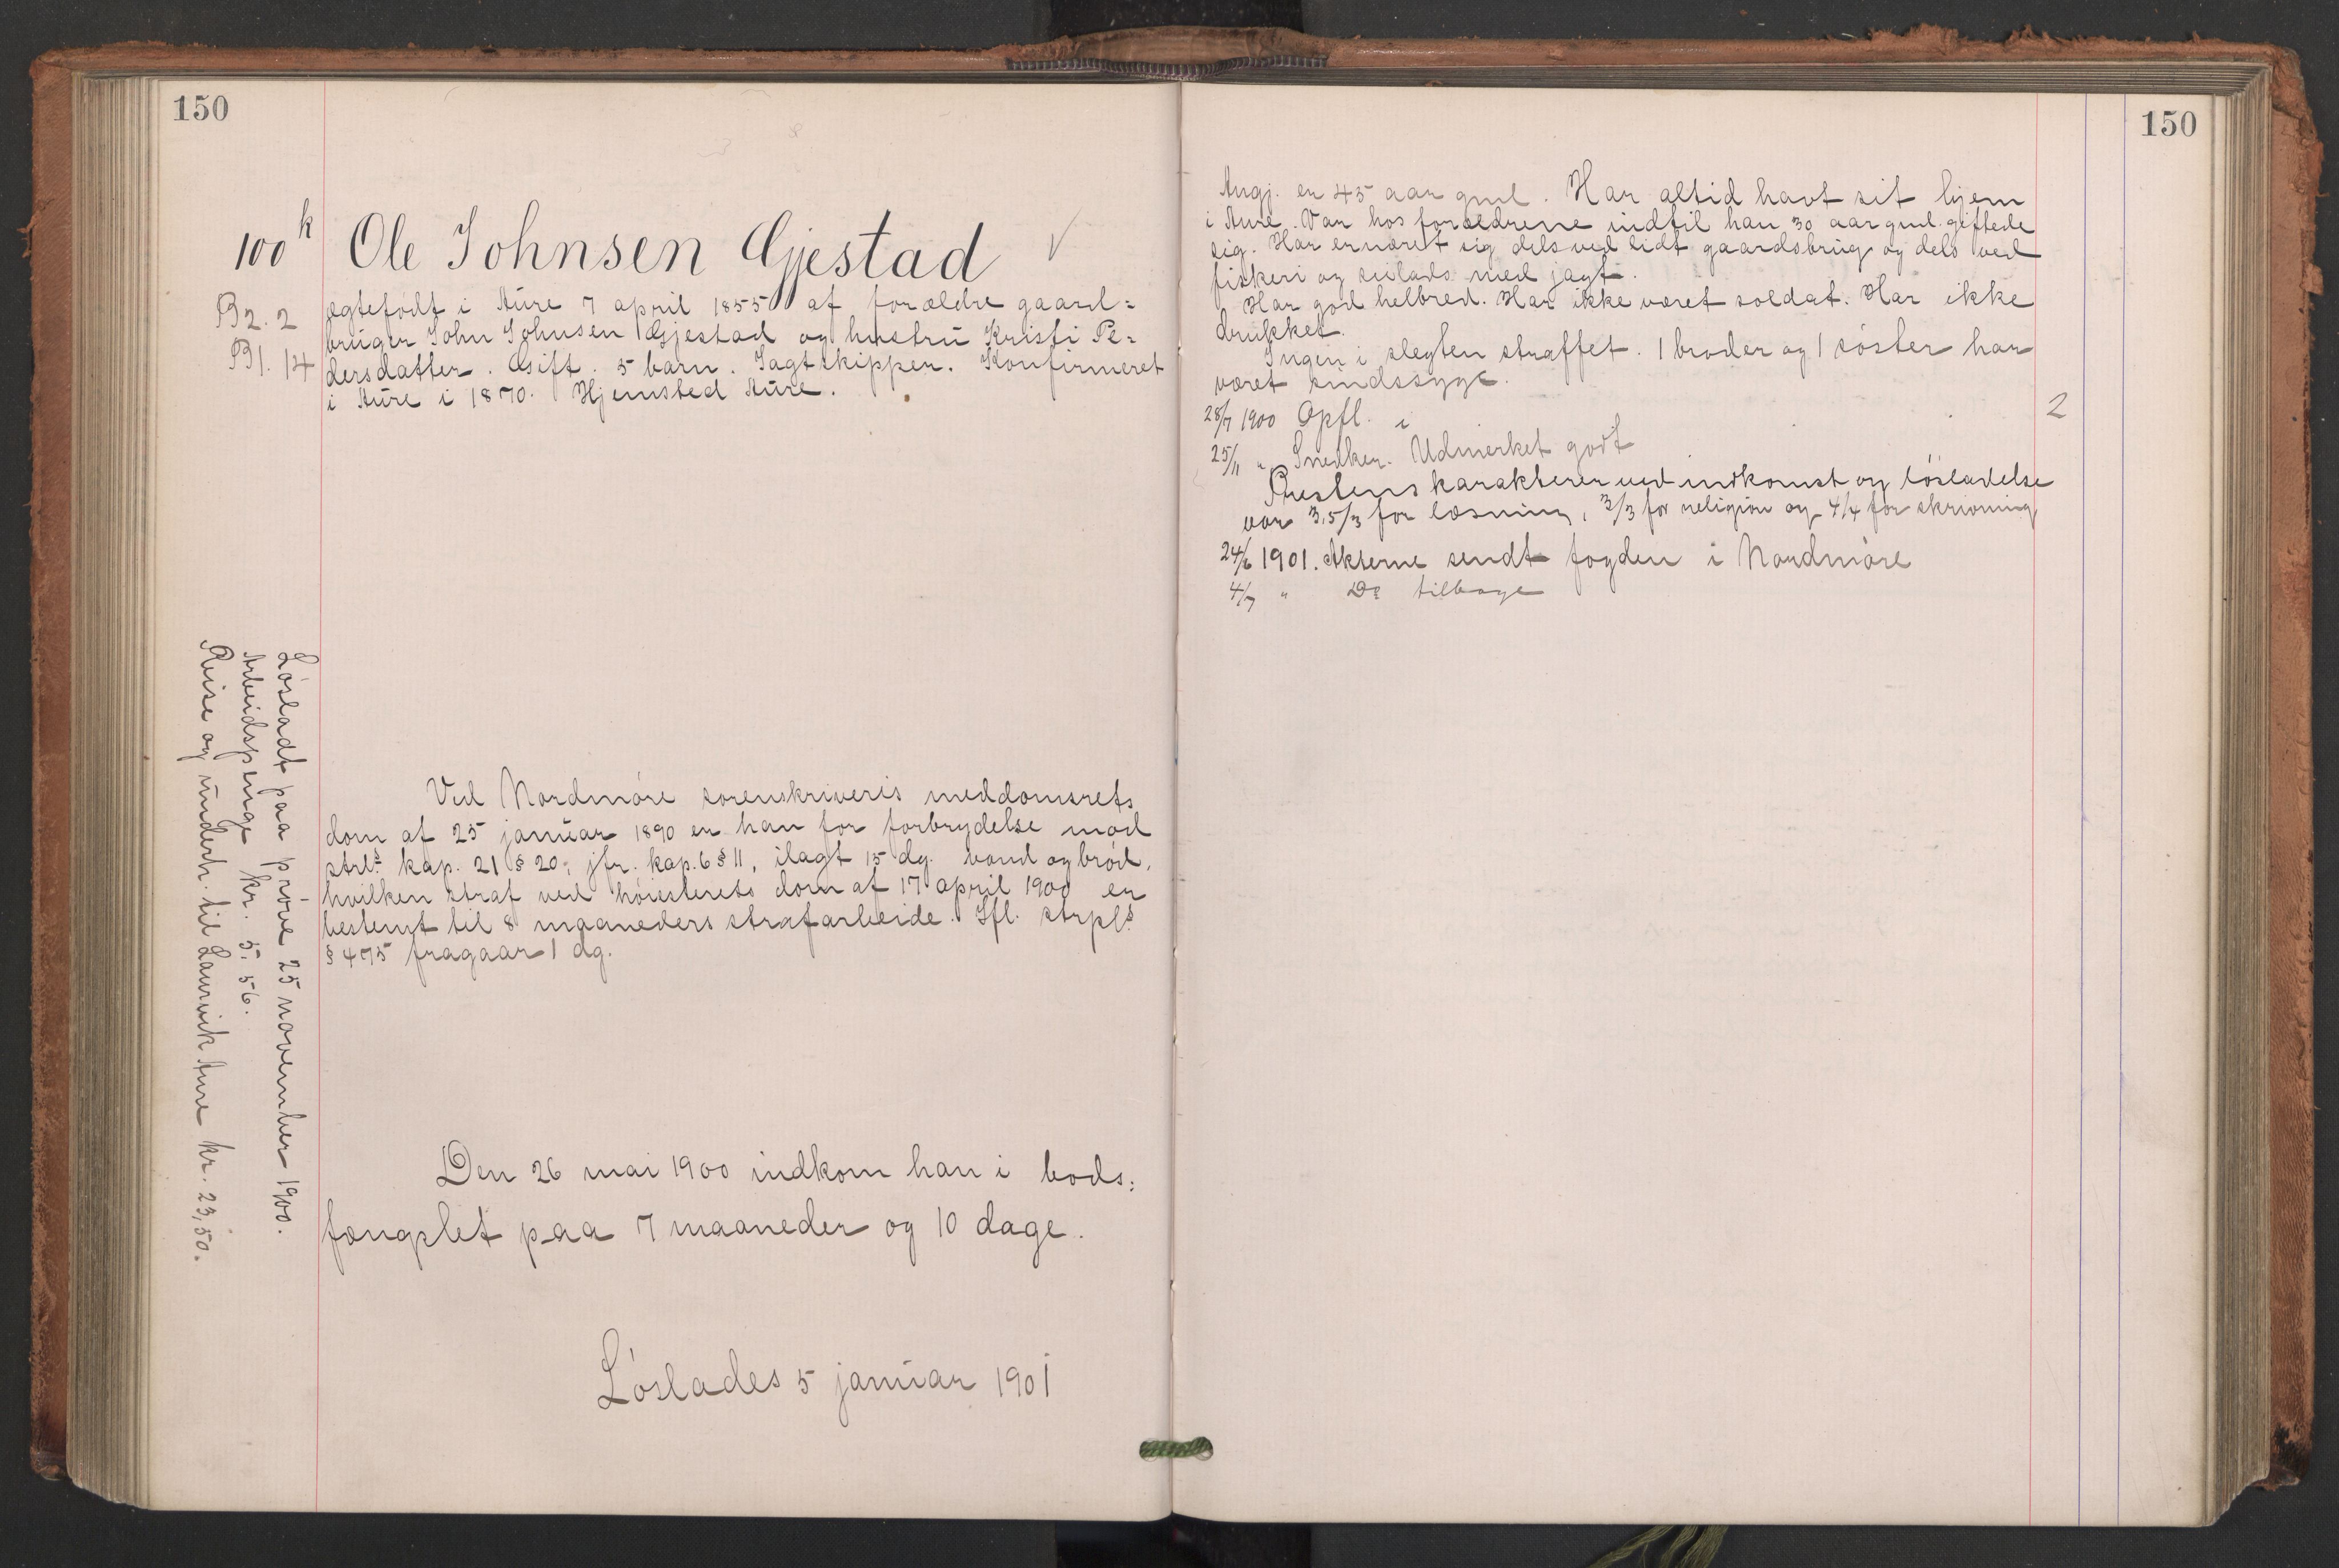 150
100 k Ole Johnsen Gjestad
B2. 2
B1. 14
ægtefødt i Aure 7 april 1855 af forældre gaard=
bruger John Johnsen Gjestad og hustru Kristi Pe=
dersdatter. Gift. 5 barn. Jagtskipper. Konfirmeret
i Aure i 1870. Hjemsted Aure.
Ved Nordmøre sorenskriveris meddomsrets
dom af 25 januar 1890 er han for forbrydelse mod
strls kap. 21 § 20, jfr. kap. 6 § 11, ilagt 15 dg. vand og brød,
hvilken straf ved høiesterets dom af 17 april 1900 er
bestemt til 8 maaneders strafarbeide. Ifl. strpls
§ 475 fragaar 1 dg.
Den 26 mai 1900 indkom han i bods=
fængslet paa 7 maaneder og 10 dage.
Løslades 5 januar 1901
Løsladt paa prøve 25 november 1900.
Arbeidspenge kr. 5.56.
Reise og underh. til Laurvik Aure kr. 23,50.
150
Angj. er 45 aar gml. Har altid havt sit hjem
i Aure. Var hos forældrene indtil han 30 aar gml. giftede
sig. Har ernæret sig dels ved lidt gaardsbrug og dels ved
fiskeri og seilads med jagt.
Har god helbred. Har ikke været soldat. Har ikke
drukket.
Ingen i slegten straffet. 1 broder og 1 søster har
været sindssyge.
28/7 1900 Opfl. i 2
25/11 " Snedker. Udmerket godt
Prestens karakterer ved indkomst og løsladelse
var 3,5/3 for læsning, 3/3 for religion og 4/4 for skrivning
24/6 1901. Akterne sendt fogden i Nordmøre
4/7 " Do tilbage